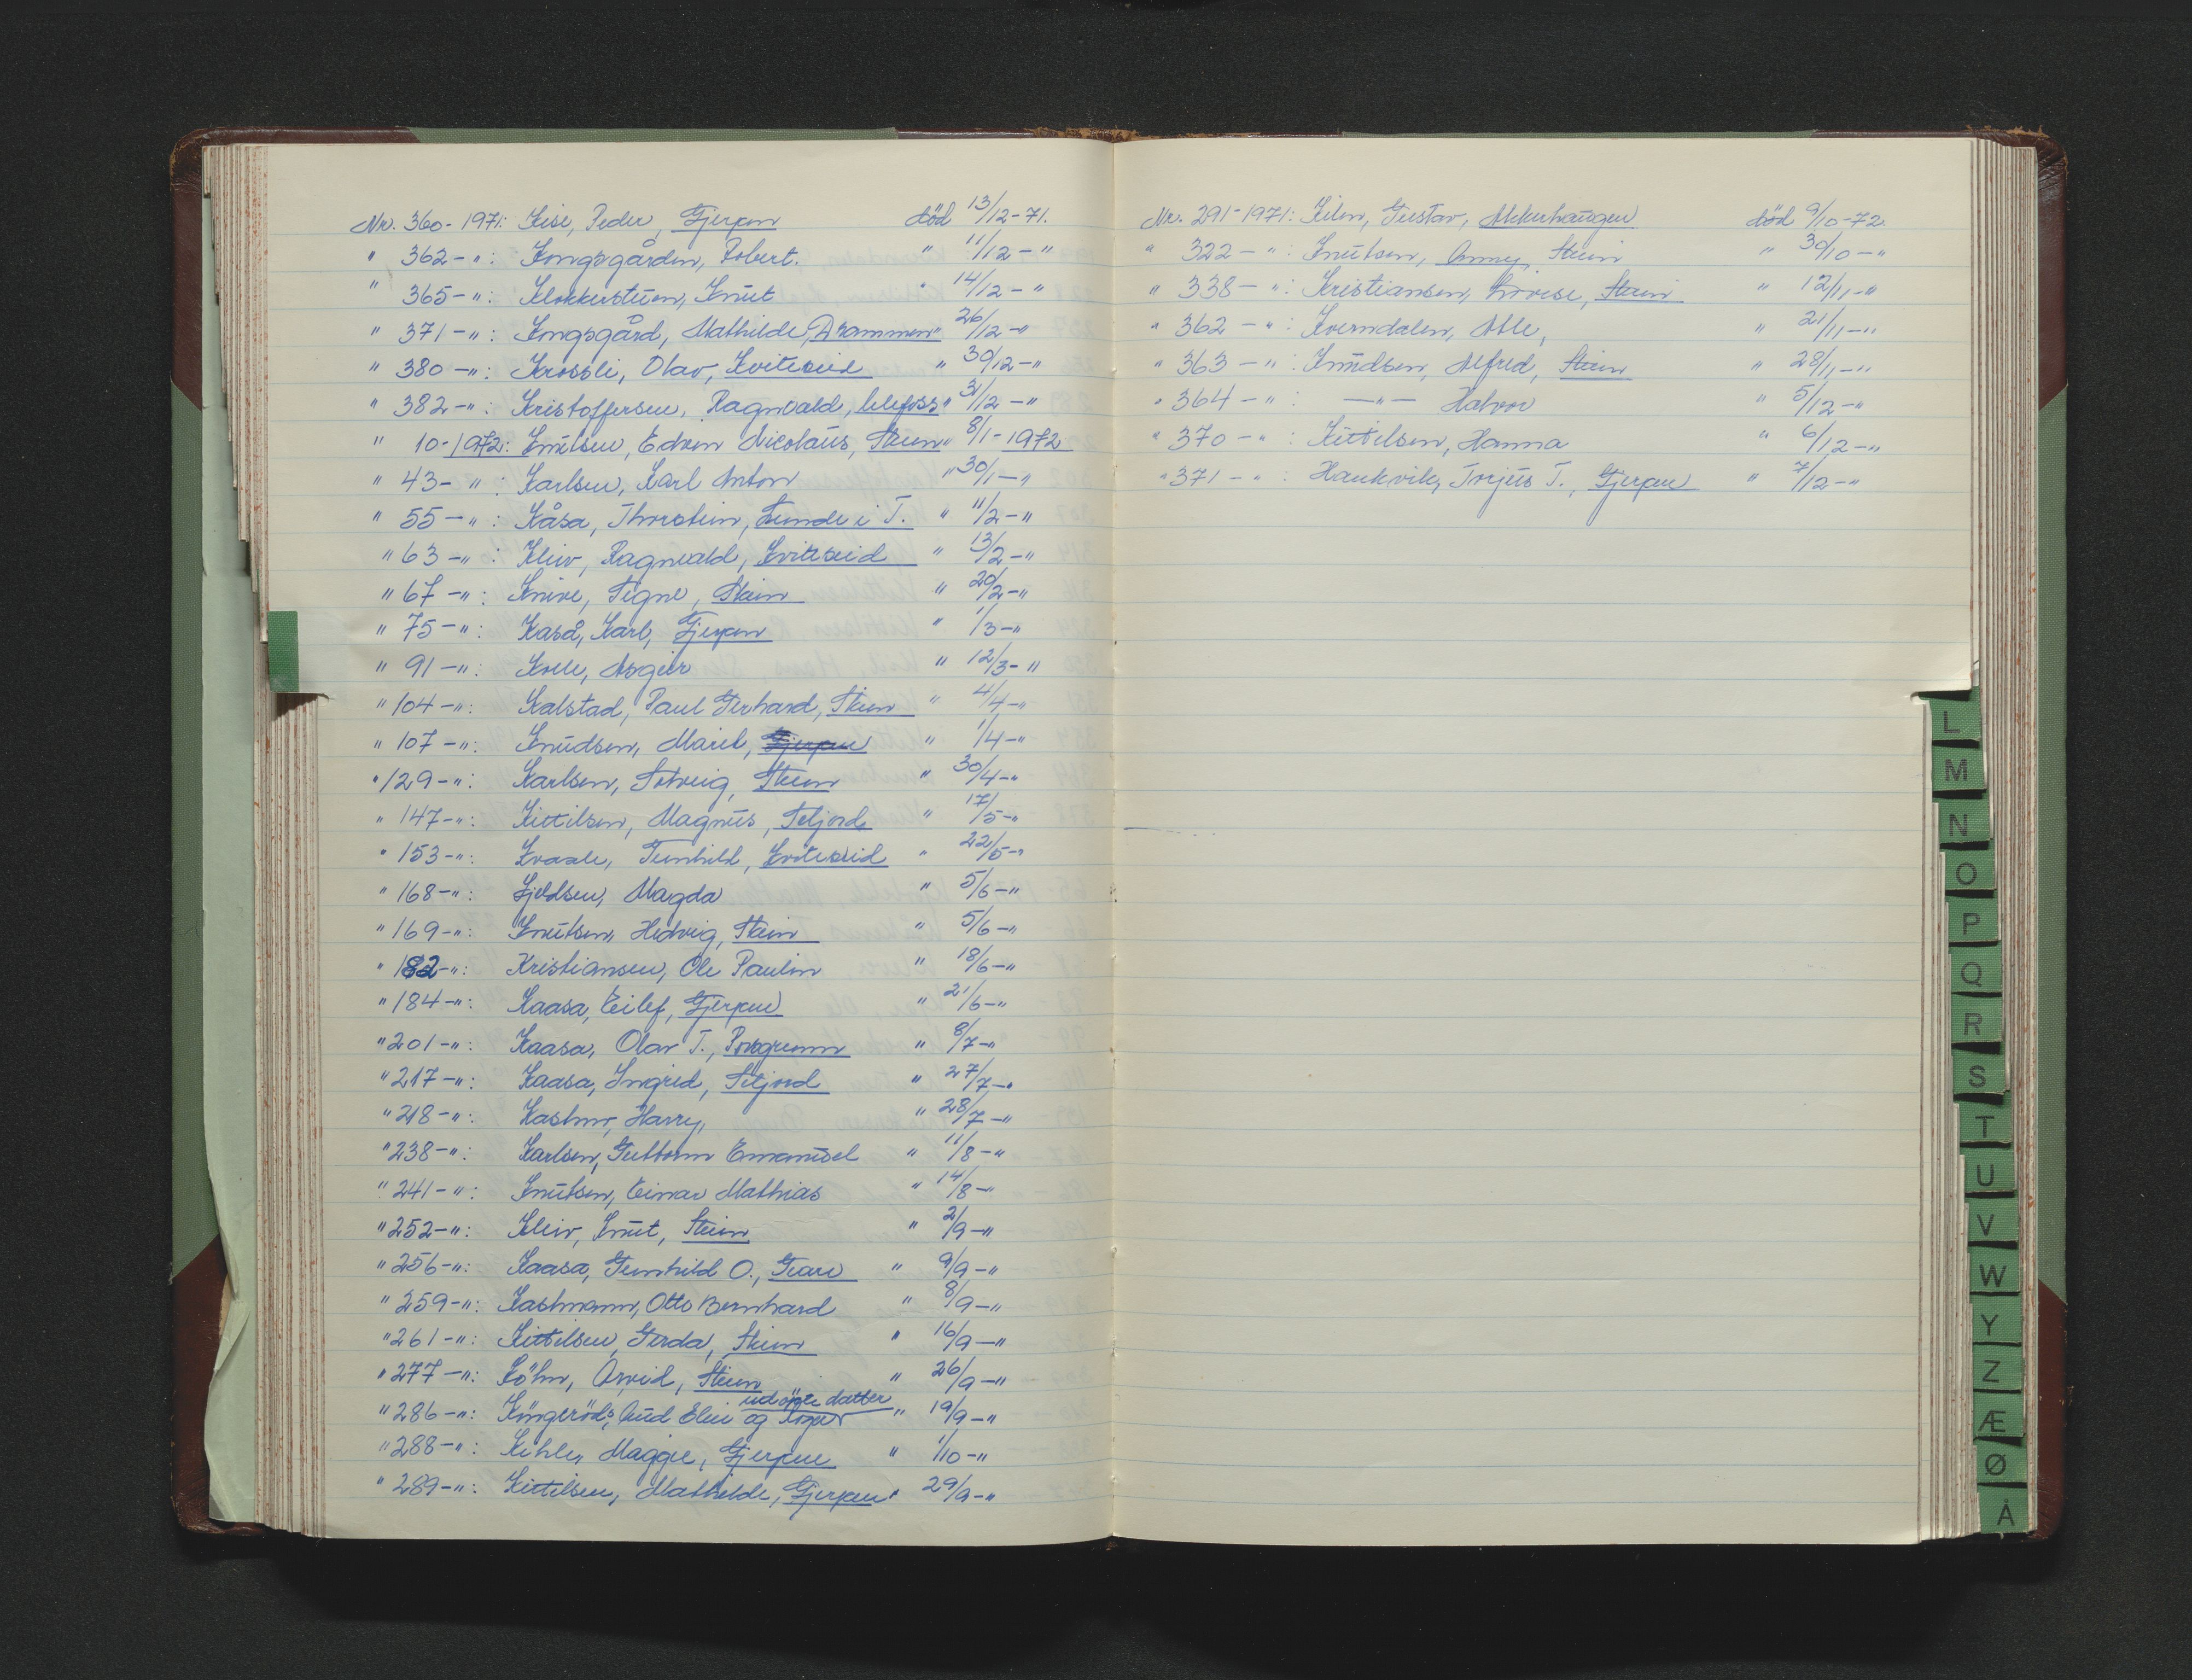 Nr. 360-1971: Kise, Peder, Gjerpen död 13/12-71.
" 362-": Kongsgården, Robert. " 11/12-"
" 365-": Klokkerstuen, Knut " 14/12-"
" 371-": Kongsgård, Mathilde, Drammen " 26/12-"
" 380-": Krossli, Olav, Kviteseid " 30/12-"
" 382-": Kristoffersen, Ragnvald, Ulefoss " 31/12-"
" 10-1972: Knutsen, Edvin Nicolaus, Skien " 8/1-1972
" 43-": Karlsen, Karl Anton " 30/1-"
" 55-": Kåsa, Thorstein, Lunde i T. " 11/2-"
" 63-": Kleiv, Ragnvald, Kviteseid " 13/2-"
" 67-": Knive, Signe, Skien " 20/2-"
" 75-": Kaså, Karl, Gjerpen " 1/3-"
" 91-": Kolle, Asgeir " 12/3-"
" 104-": Kalstad, Paul Gerhard, Skien " 4/4-"
" 107-": Knudsen, Marit, Gjerpen " 1/4-"
" 129-": Karlsen, Solveig, Skien " 30/4-"
" 147-": Kittilsen, Magnus, Seljord " 17/5-"
" 153-": Kvaale, Gunhild, Kviteseid " 22/5-"
" 168-": Kjeldsen, Magda " 5/6-"
" 169-": Knutsen, Hedvig, Skien " 5/6-"
" 182-": Kristiansen, Ole Paulin " 18/6-"
" 184-": Kaasa, Eilef, Gjerpen " 21/6-"
" 201-": Kaasa, Olav T., Porsgrunn " 8/7-"
" 217-": Kaasa, Ingrid, Seljord " 27/7-"
" 218-": Kastnr, Harry, " 28/7-"
" 238-": Karlsen, Guttorm Emanuel " 11/8-"
" 241-": Knutsen, Einar Mathias " 14/8-"
" 252-": Kleiv, Knut, Skien " 2/9-"
" 256-": Kaasa, Gunhild O., " 9/9-"
" 259-": Kastmann, Otto Bernhard " 8/9-"
" 261-": Kittilsen, Gerda, Skien " 16/9-"
" 277-": Köhn, Arvid, Skien " 26/9-"
" 286-": Kongeröds, Aud Elin og Roger udöpte datter " 19/9-"
" 288-": Kihle, Maggie, Gjerpen " 1/10-"
" 289-": Kittilsen, Mathilde, Gjerpen " 29/9-"
Nr. 291-1971: Kilen, Gustav, Akkerhaugen död 9/10-72.
" 322-": Knutsen, Anny, Skien " 30/10-"
" 338-": Kristiansen, Lovise, Skien " 12/11-"
" 362-": Kverndalen, Atle, " 21/11-"
" 363-": Knudsen, Alfred, Skien " 28/11-"
" 364-": -"- Halvor " 5/12-"
" 370-": Kittilsen, Hanna " 6/12-"
" 371-": Haukvik, Torjus T., Gjerpen " 7/12-"
L
M
N
O
P
Q
R
S
T
U
V
W
Y
Z
Æ
Ø
Å